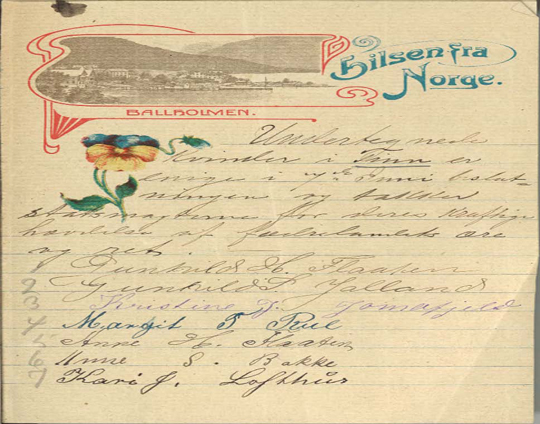 Hilsen fra
Norge.
BALLHOLMEN.
Undertegnede
kvinder i Tinn er
enige i 7de Juni beslut-
ningen og takker
statsmagterne for deres kraftige
hævdelse af fædrelandets ære
og ret.
1 Gunhild H. Flaaten
2 Gunhild Jalland
3 Kristine J.
4 Margit T Rue
5 Anne H. Flaaten
6 Unne S. Bakke
7 Kari J. Lofthus